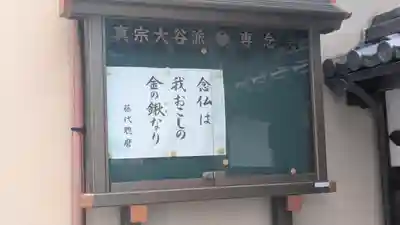 真宗大谷派 専念
念仏は
我おこしの
金の鍬なり
藤代聰麿